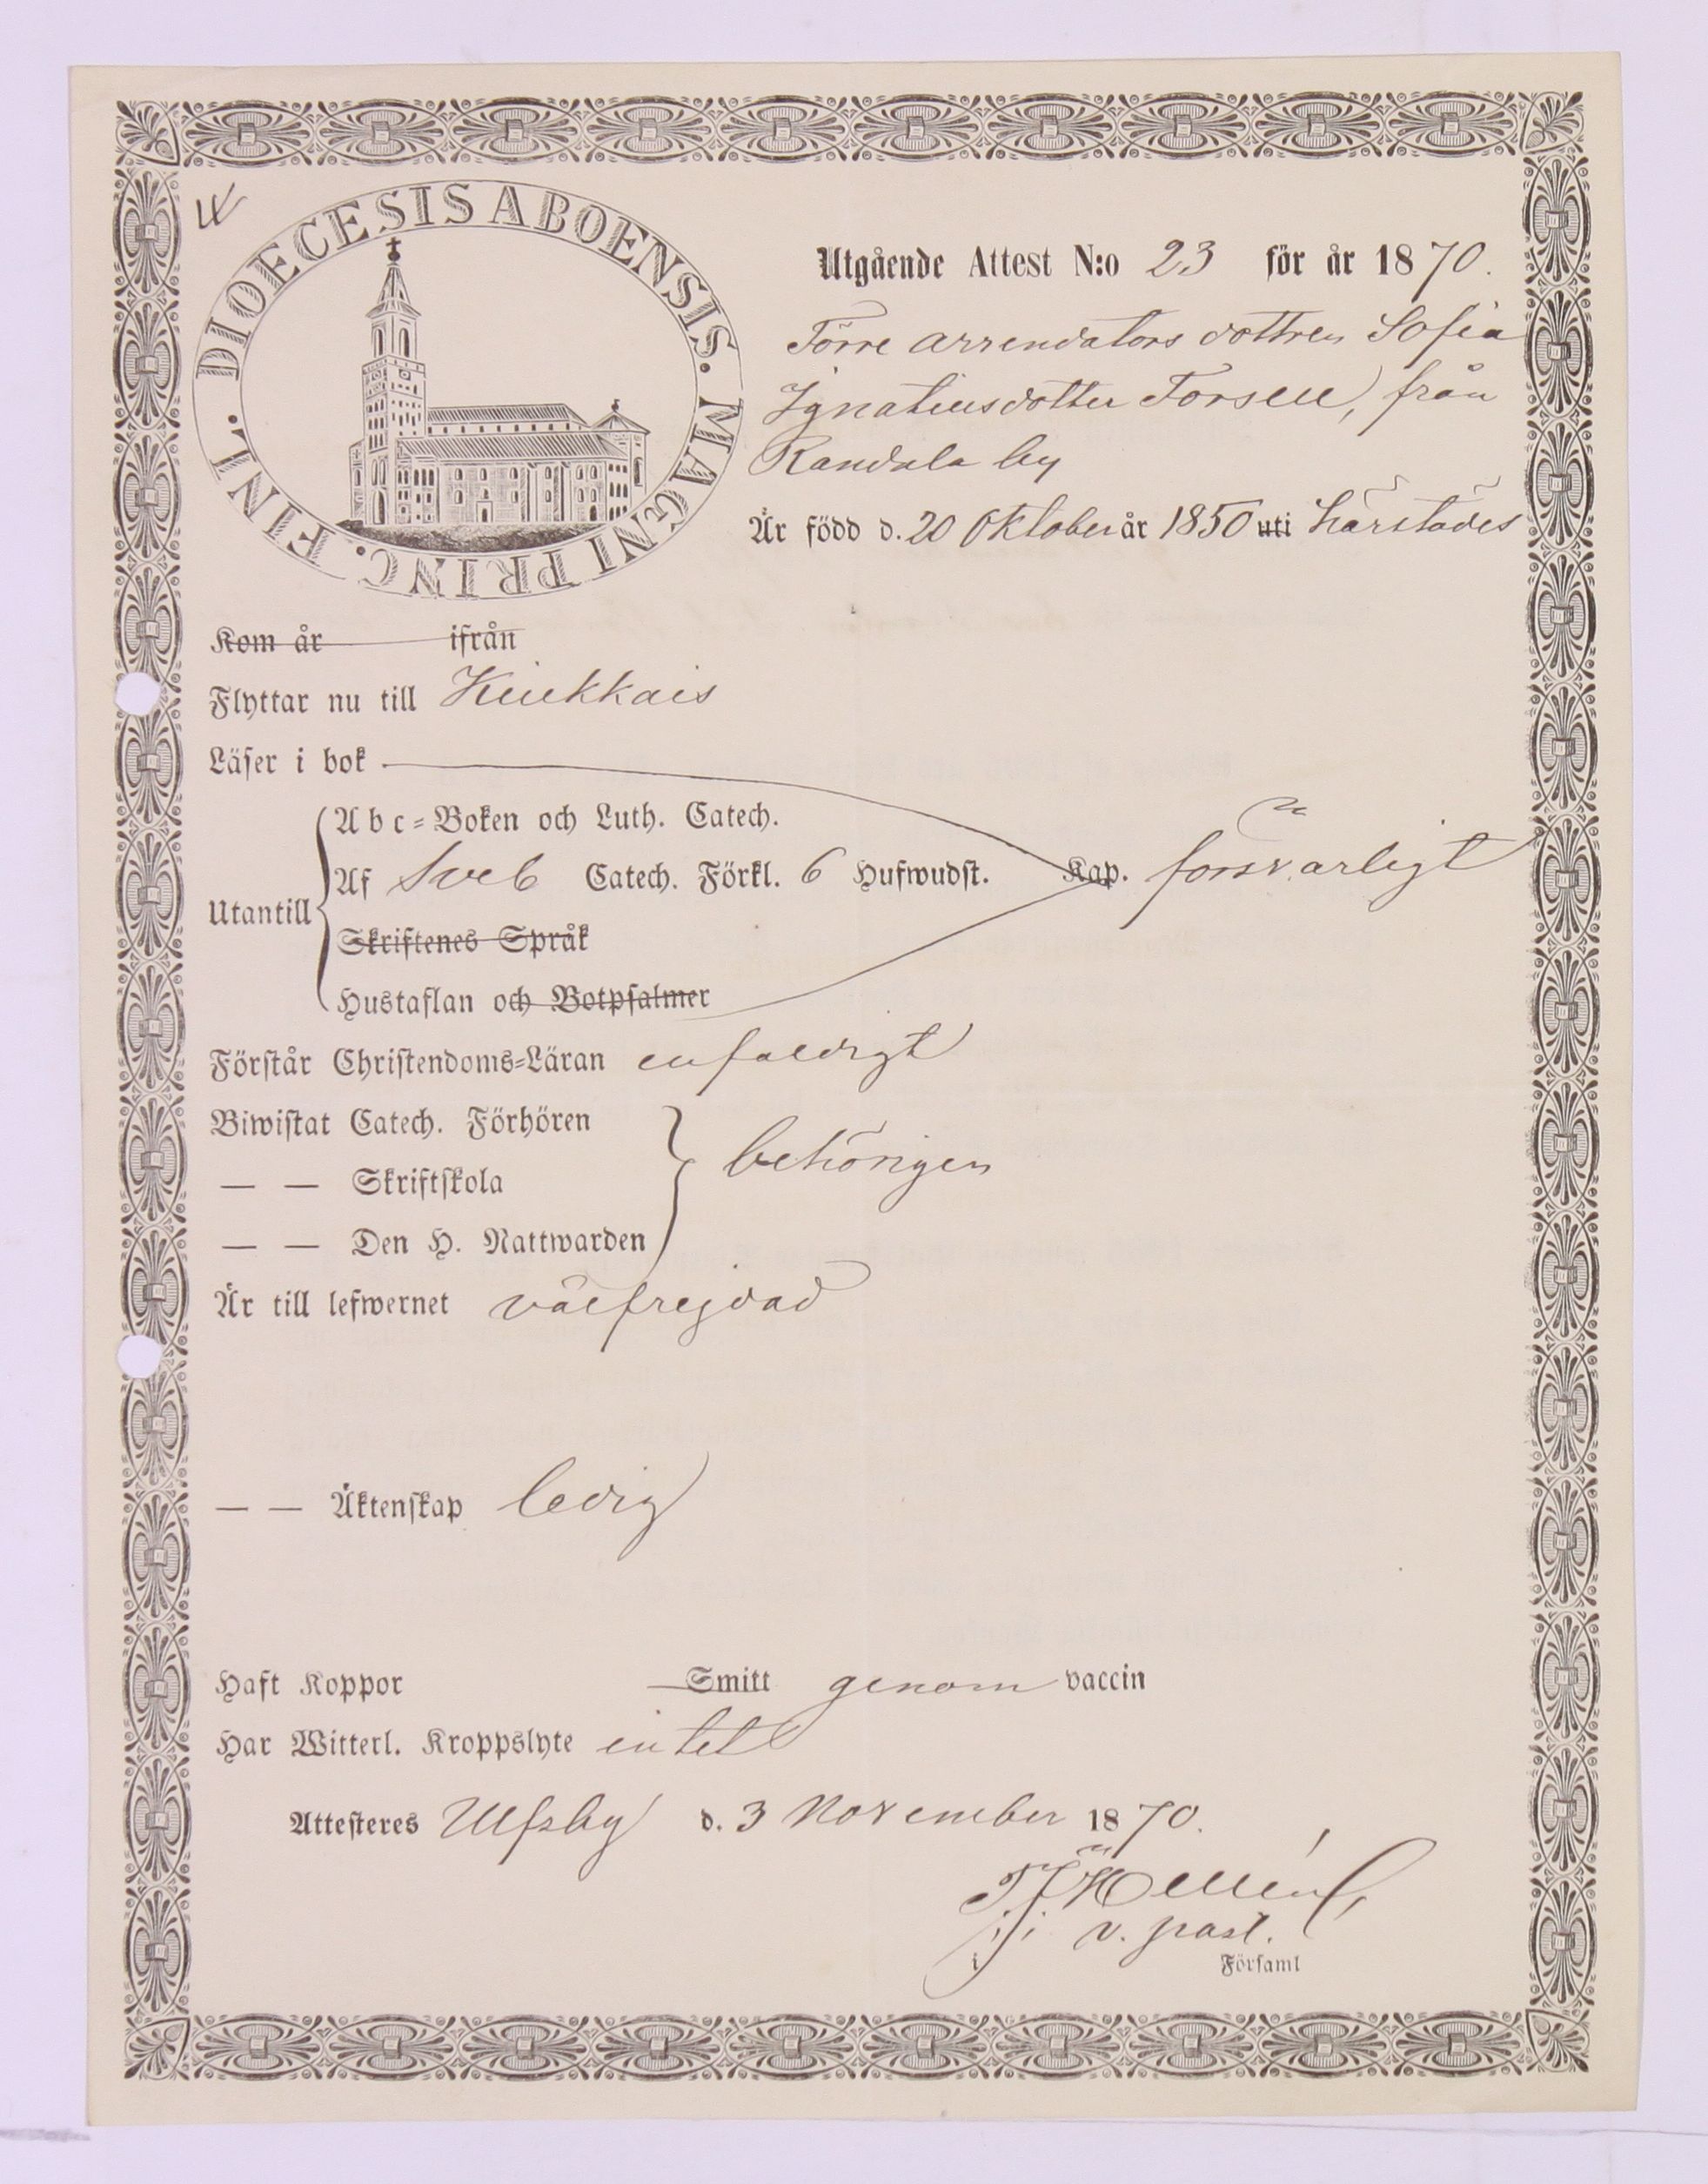 DIOECESIS ABOENSIS. MAGNI PRINC. FINL.
Utgående Attest N:o 23 för år 1870.
Förre arrendators dottren Sofia
Ignatiusdotter Forsell, från
Randala by
Är född d. 20 Oktober år 1850 uti härstädes
Kom år ifrån
Flyttar nu till Kiukkais
Läser i bok
Abc-Boken och Luth. Catech.
Utantill Af Sveb Catech. Förkl. 6 Hufwudst. Kap. försvarligt
Skriftenes Språk
Hustaflan och Botpsalmer
Förstår Christendoms-Läran enfaldigt
Biwistat Catech. Förhören
— — Skriftskola behörigen
— — Den H. Nattwarden
Är till lefwernet välfrejdad
— — Äktenskap ledig
Haft Koppor Smitt genom vaccin
Har Witterl. Kroppslyte intet
Attesteres Ulfsby d. 3 November 1870.
v. past.
i Församl